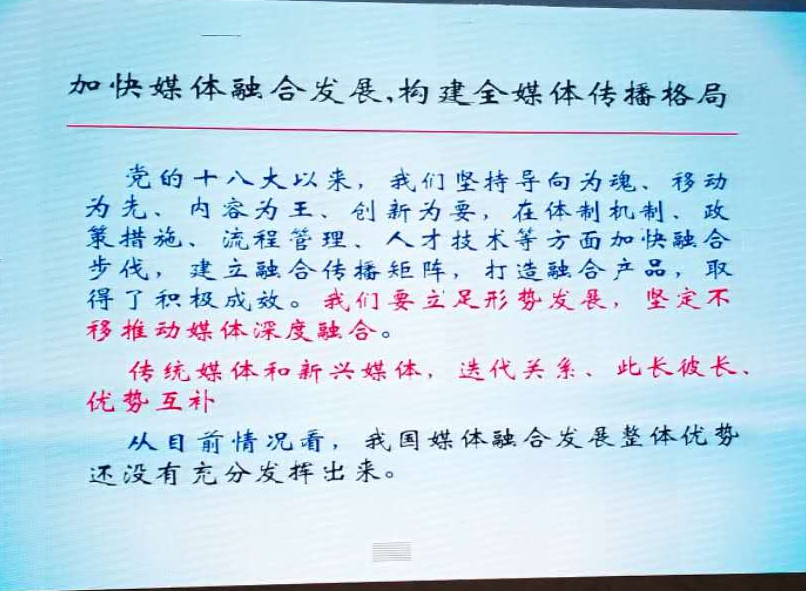 加快媒体融合发展,构建全媒体传播格局
党的十八大以来，我们坚持导向为魂、移动
为先、内容为王、创新为要，在体制机制、政
策措施、流程管理、人才技术等方面加快融合
步伐，建立融合传播矩阵，打造融合产品，取
得了积极成效。我们要立足形势发展，坚定不
移推动媒体深度融合。
传统媒体和新兴媒体，迭代关系、此长彼长、
优势互补
从目前情况看，我国媒体融合发展整体优势
还没有充分发挥出来。